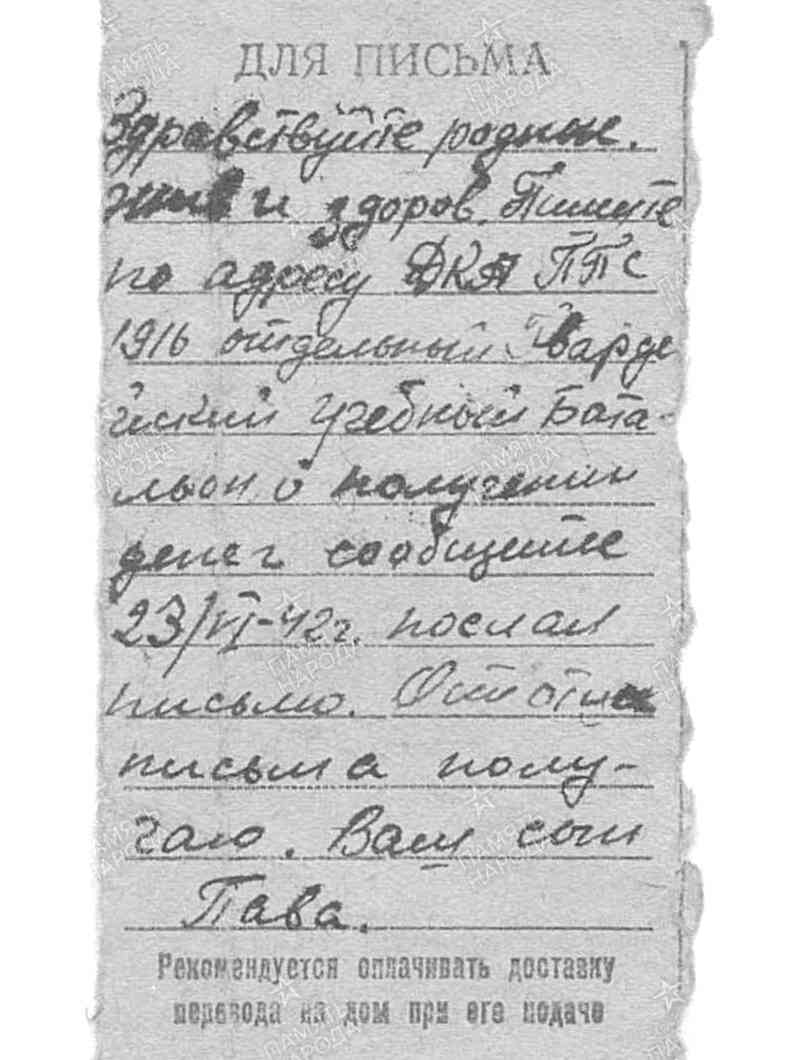 ДЛЯ ПИСЬМА
Здравствуйте родные.
жив и здоров. Пишите
по адресу ДКА ППС
1916 отдельный Гварде
йский Учебный Бата-
льон о получении
денег сообщите
23/VI-42г. послал
письмо. От отца
письма полу-
чаю. Ваш сын
Пава.
Рекомендуется оплачивать доставку
перевода на дом при его подаче
ПАМЯТЬ НАРОДА